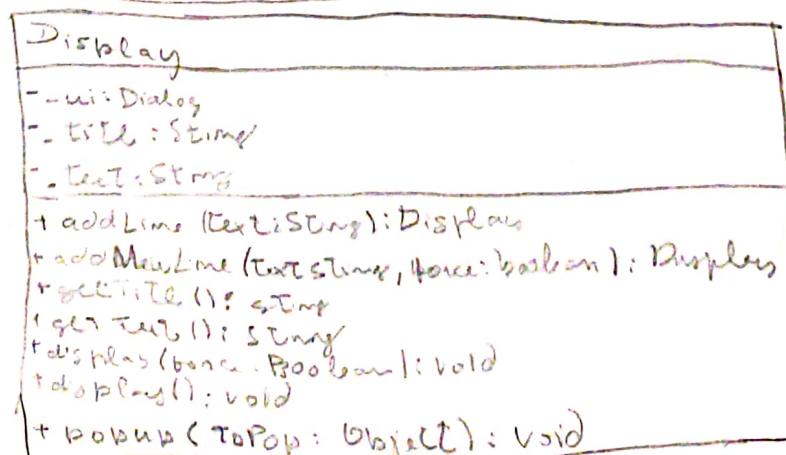 Display
- _ui: Dialog
- _title: String
- _text: String
+ addLine (text: String): Display
+ addNewLine (text String, force: boolean): Display
+ getTitle (): string
+ getText (): string
+ display (force: Boolean): void
+ display(): void
+ popup (toPop: Object): void